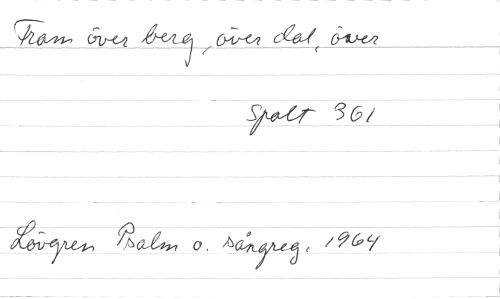 Fram över berg, över dal, över
Spalt 361
Lövgren Psalm o. sångreg. 1964